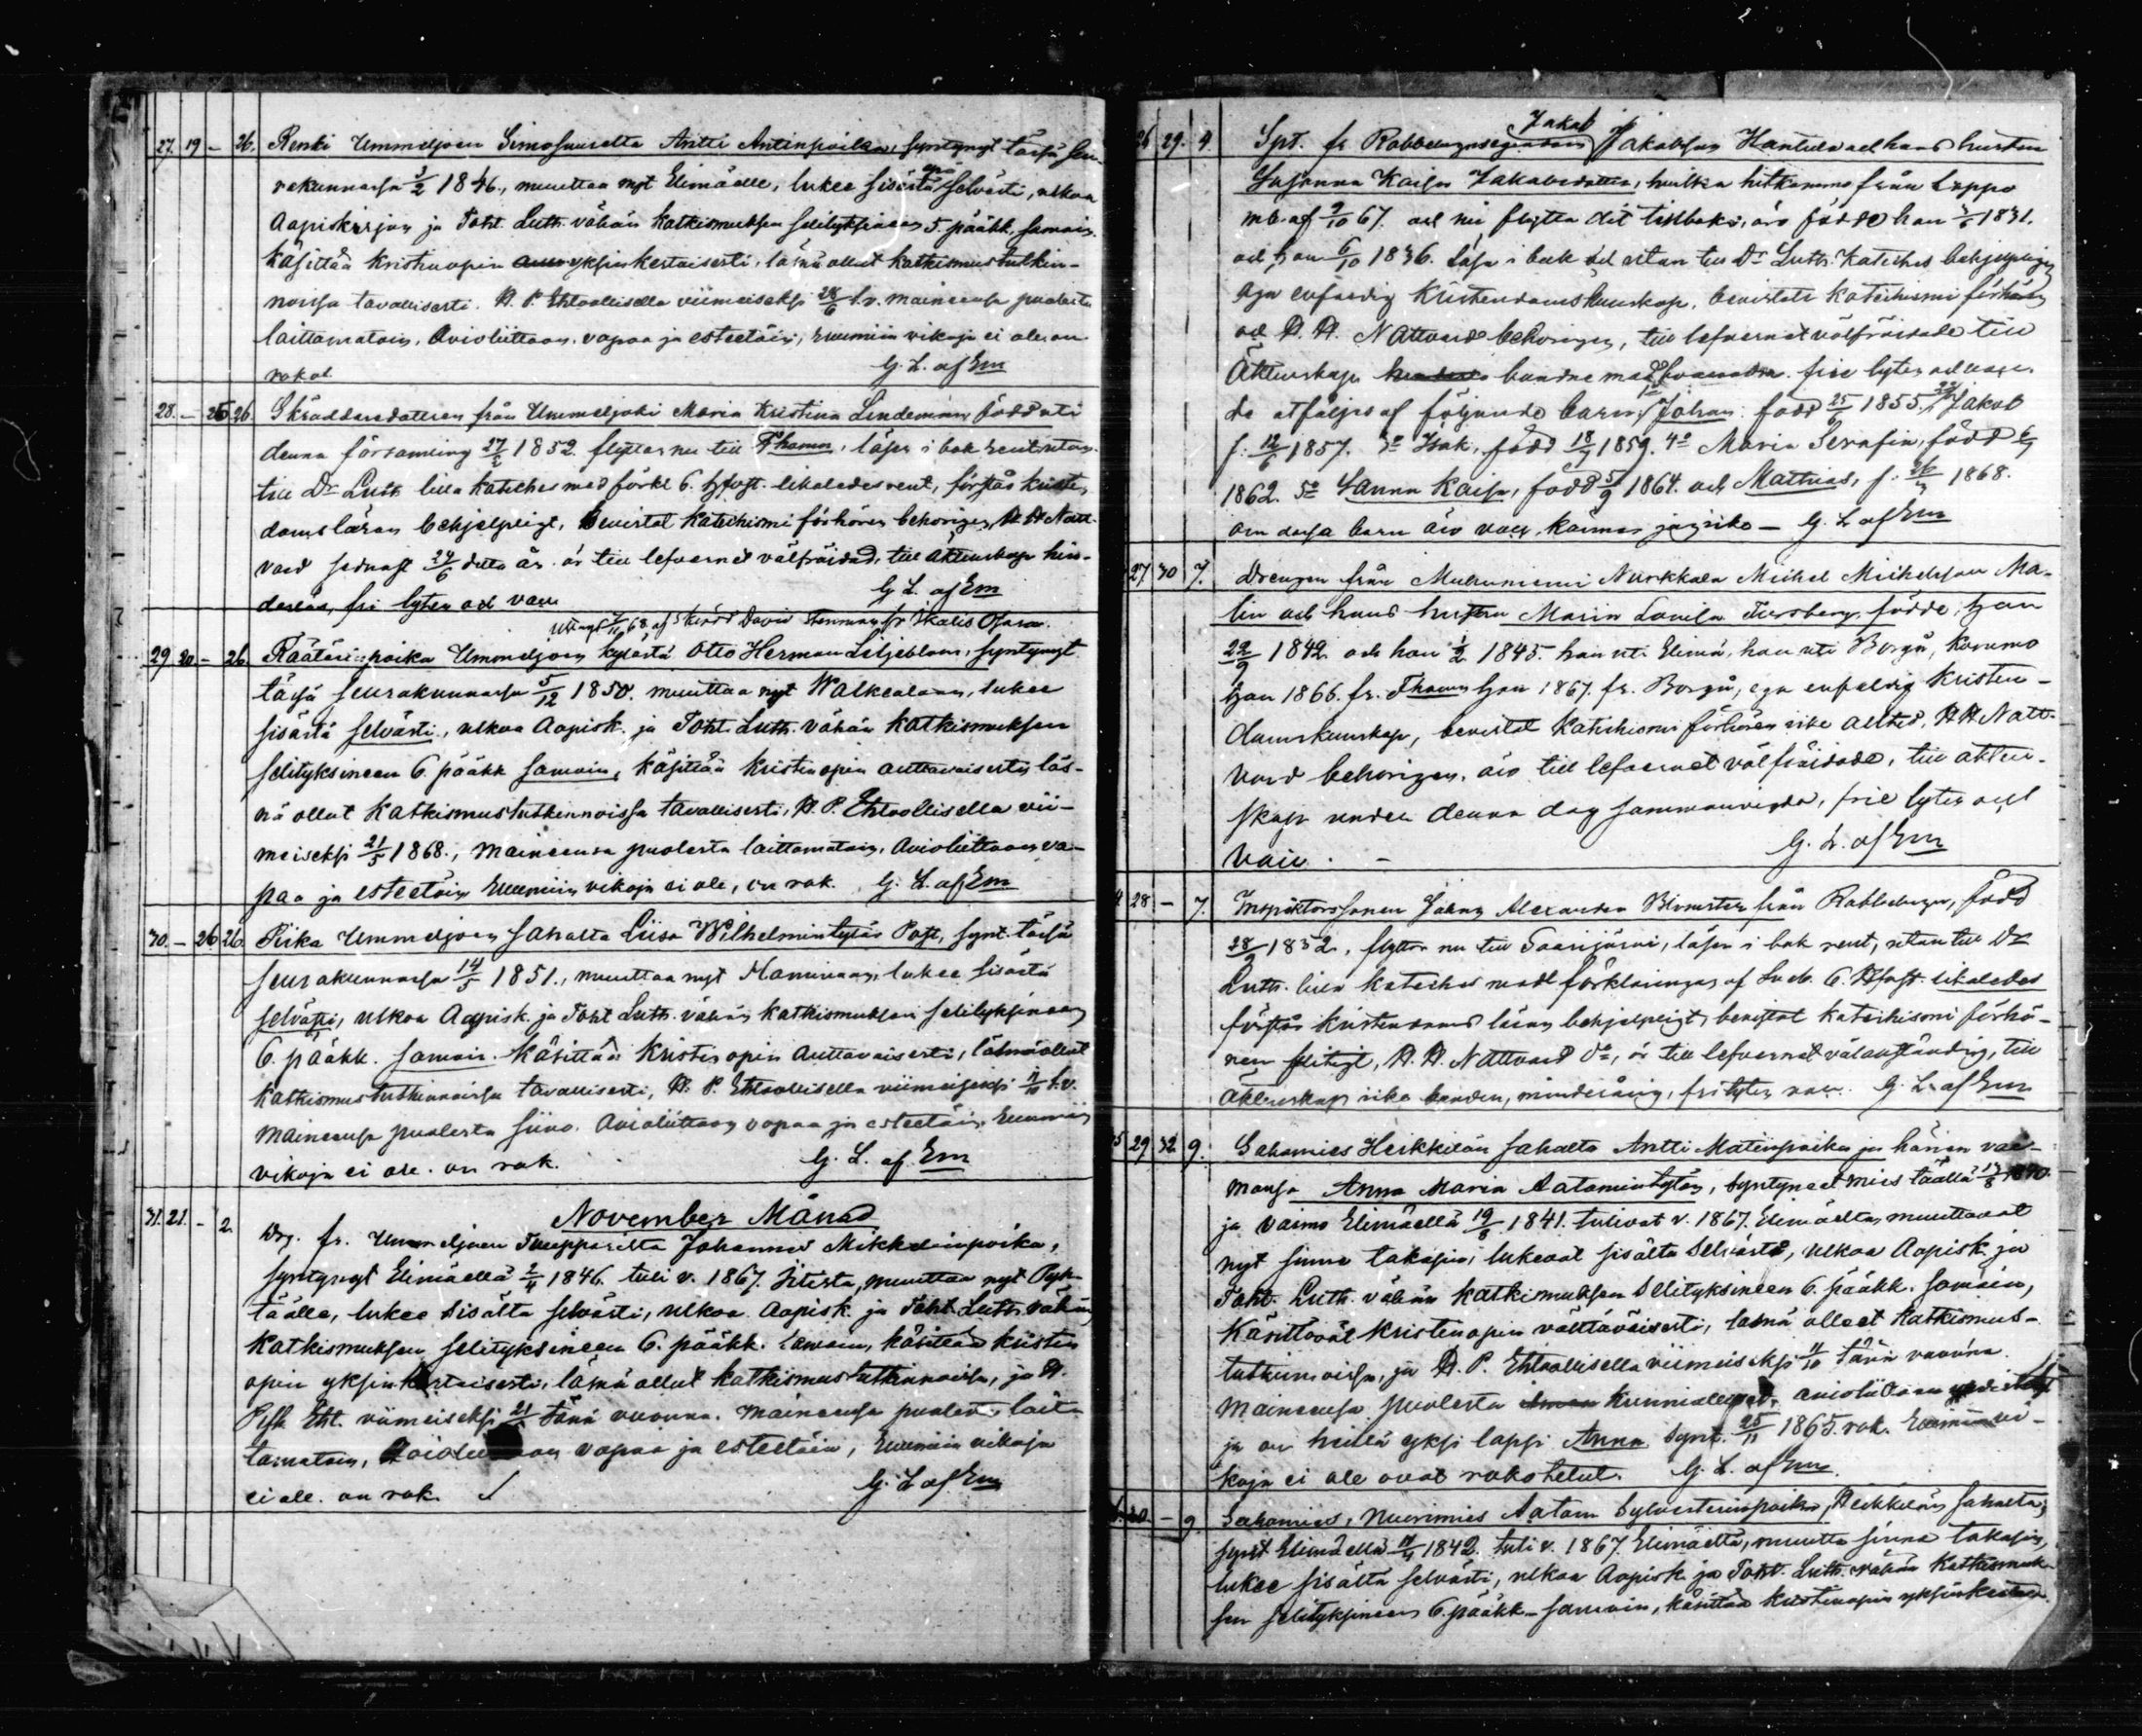 27. 19 – 26. Renki Ummeljoen Simosuuelta Antti Antinpoika, syntynyt tässä seu-
rakunnassa 3/2 1846, muuttaa nyt Elimäelle, lukee sisästä selvästi, ulkoa
Aapiskirjan ja Toht. Luth. vähän Katkismuksen selityksineen 5. pääkk. samoin
käsittää Kristinopin yksinkertaisesti, läsnä ollut Katkismustutkin-
noissa tavallisesti. H. P. Ehtoollisella viimeiseksi 28/6 t.v. maineensa puolesta
laittamatoin, Avioliittoon vapaa ja esteetöin, ruumiin vikaja ei ole, on
rokot. G. L. af Em
28. – 25 26 Skräddaredottren från Ummeljoki Maria Kristina Lindeman född uti
denna församling 27/2 1852. flyttar nu till Thomn, läser i bok rent, utan
till Dr Luth. lilla Kateches med förkl 6. hfvst. likaledes rent, förstår kristen-
domsläran behjelpligt, bevistat Katechismi förhören behörigen, H H Natt-
vard sednast 24/6 detta år. är till lefvernet välfräidad, till äktenskap hin-
derlös, fri lyten och vacc G. L. af Em
29 20 – 26 Räätälinpoika Ummeljoen kylästä Otto Herman Liljeblom, syntynyt
tässä seurakunnassa 5/12 1850. muuttaa nyt Walkealaan, lukee
sisästä selvästi, ulkoa Aapisk. ja Toht. Luth. vähän Katkismuksen
selityksineen 6. pääkk samoin, käsittää Kristinopin auttavaisesti, läs-
nä ollut Katkismustutkinnoissa tavallisesti, H. P. Ehtoollisella vii-
meiseksi 21/5 1868., maineensa puolesta laittamatoin, Avioliittoon va-
paa ja esteetöin Ruumiin vikoja ei ole, on rok. G. L. af Em
30. – 26 26. Piika Ummeljoen sahalta Liisa Wilhelmintytär Post, synt. tässä
seurakunnassa 14/5 1851., muuttaa nyt Haminaan, lukee sisästä
selvästi, ulkoa Aapisk. ja Toht Luth. vähän Katkismuksen selityksineen
6. pääkk. samoin. Käsittää Kristin opin auttavaisesti, läsnä ollut
Katkismustutkinnoissa tavallisesti, H. P. Ehtoollisella viimeiseksi 11/10 t.v.
Maineensa puolesta siivo. Avioliittoon vapaa ja esteetöin, Ruumiin
vikoja ei ole. on rok. G. L. af Em
November Månad
31. 21. – 2. Drg. fr. Ummeljoen Johannes Mikkelinpoika,
syntynyt Elimäellä 2/4 1846. tuli v. 1867. Iitistä, muuttaa nyt Pyh-
täälle, lukee sisältä selvästi, ulkoa Aapisk. ja Toht Luth. vähän
Katkismuksen selityksineen 6. pääkk. samoin, käsittää kristin
opin yksinkertaisesti, läsnä ollut Katkismustutkinnoissa, ja H.
Eht. viimeiseksi tänä vuonna. Maineensa puolesta lait-
tamatoin, vapaa ja esteetöin, Ruumiin vikoja
ei ole. on rok. G. L af Em
26 29. 4. Spt. fr Rabbelugnsegendom Jakob Jakobsson Hantula och hans hustru
Susanna Kaisa Jakobsdotter, hvilka hitkommo från Lappo
m.b. af 9/10 67. och nu flytta dit tillbaka, äro födde han 1831.
och hon 6/10 1836. läsa i bok och utan till Dr Luth. Kateches behjelpligen
äga enfaldig Kristendomskunskap, bevistat Katechismi förhören
och H. H. Nattvard behörigen, till lefvernet välfräidade till
Äktenskap bundne med frie lyten och vacc
de åtföljas af följande barn: Johan. född 25/6 1855. 2o Jakob
f. 12/6 1857. 3o Isak, född 18/7 1859. 4o Maria Serafin, född
1862. 5o Sanna Kaisa, född 5/9 1864. och Mathias, f. 1868.
om dessa barn äro vacc. kännes jag icke – G. L af Em
27 30 7. Drengen från Muhniemi Nurkkala Michel Michelsson Ma-
lin och hans hustru Maria Lovisa Forsberg, födde, han
22/9 1842 och hon 1/2 1845. han uti Elimä, hon uti Borgå, kommo
han 1866. fr. Thomn hon 1867. fr. Borgå, ega enfaldig Kristen-
domskunskap, bevistat Katechismi förhören icke alltid, H H Natt-
vard behörigen, äro till lefvernet välfräidade, till äkten-
skap under denna dag sammanvigda, frie lyten och
vacc. – G. L. af Em
28 – 7. Inspektorssonen Johan Alexander från Rabbelugn, född
28/9 1852, flyttar nu till Saarijärvi, läser i bok rent, utan till Dr
Luth. lilla Kateches med förklaringar af 6. Hfst. likaledes
förstår Kristendoms läran behjelpligt, bevistat Katechismi förhö-
ren flitigt, H. H. Nattvard do, är till lefvernet välanständig, till
Äktenskap icke bunden, minderårig, fri lyten vacc. G. L af Em
29 32 9. Sahamies Heikkilän sahalta Antti Matinpoika ja hänen vai-
monsa Anna Maria Aatamintytär, syntyneet mies täällä 1840
ja vaimo Elimäellä 19/8 1841. tulivat v. 1867. Elimäeltä, muuttavat
nyt sinne takasin, lukevat sisältä selvästi, ulkoa Aapisk. ja
Toht. Luth. vähän Katkismuksen selityksineen 6. pääkk. samoin,
Käsittävät Kristinopin välttäväisesti, läsnä olleet Katkismus-
tutkinnoissa, ja H. P. Ehtoollisella viimeiseksi 11/10 tänä vuonna.
Maineensa puolesta kunnialliset, avioliittoon yhdistetyt
ja on heillä yksi lapsi Anna synt. 25/11 1865. rok. Ruumiin vi-
koja ei ole ovat rokotetut. G. L. af Em
30 – 9. Sahamies, Nuorimies Aatam Sylvesterinpoika, Heikkilän sahalta,
synt Elimäellä 1842. tuli v. 1867. Elimäeltä, muutta sinne takasin,
lukee sisältä selvästi, ulkoa Aapisk. ja Toht. Luth. vähän Katkismuk-
sen selityksineen 6. pääkk. samoin, käsittää kristinopin